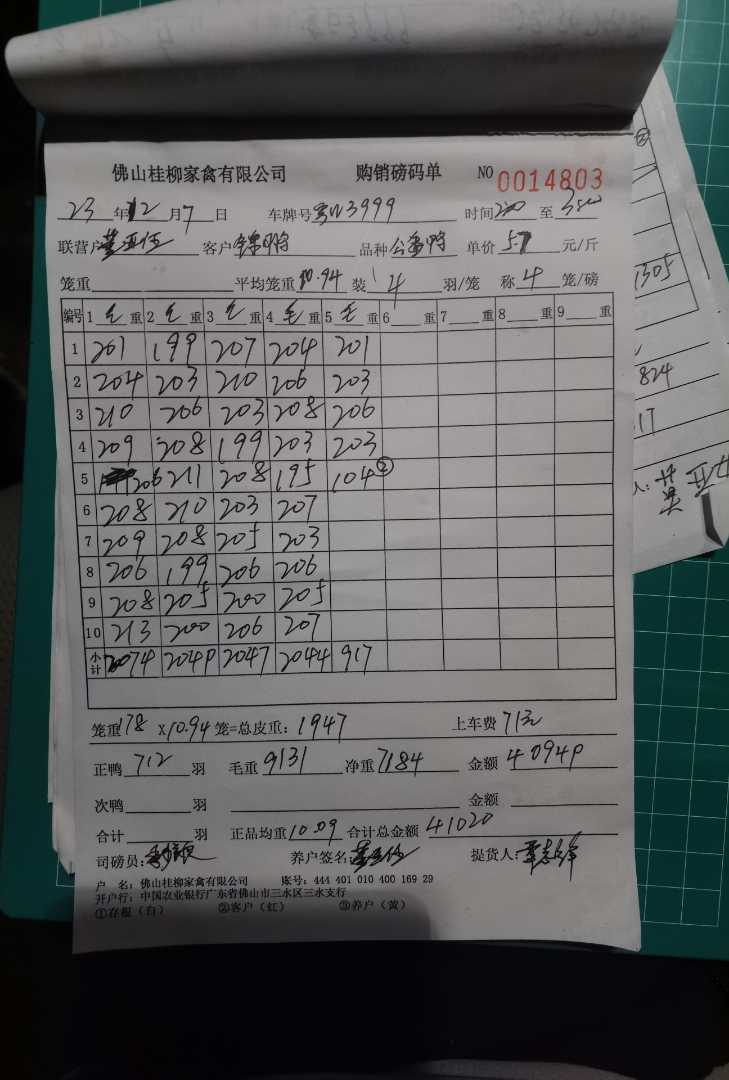 佛山桂柳家禽有限公司 购销磅码单 NO 0014803
23 年 12 月 7 日 车牌号 3999 时间 至
联营户 客户 品种 单价 5.7 元/斤
笼重 平均笼重 10.94 装 4 羽/笼 称 4 笼/磅
编号 1 毛 重 2 毛 重 3 毛 重 4 毛 重 5 毛 重 6 重 7 重 8 重 9 重
1 201 199 207 204 201
2 204 203 210 206 203
3 210 206 203 208 206
4 209 208 199 203 203
5 206 211 208 195 104 ②
6 208 210 203 207
7 209 208 205 203
8 206 199 206 206
9 208 205 200 205
10 213 200 206 207
小计 2074 2049 2047 2044 917
笼重 178 X 10.94 笼=总皮重: 1947 上车费 71元
正鸭 712 羽 毛重 9131 净重 7184 金额 40949
次鸭 羽 金额
合计 羽 正品均重 10.09 合计总金额 41020
司磅员: 养户签名: 提货人:
户 名: 佛山桂柳家禽有限公司 账号: 444 401 010 400 169 29
开户行: 中国农业银行广东省佛山市三水区三水支行
①存根(白) ②客户(红) ③养户(黄)
1305
824
17